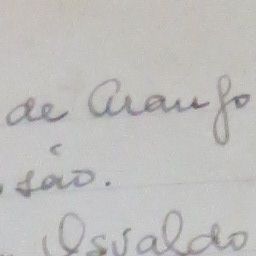 de Araujo
são.
Osvaldo